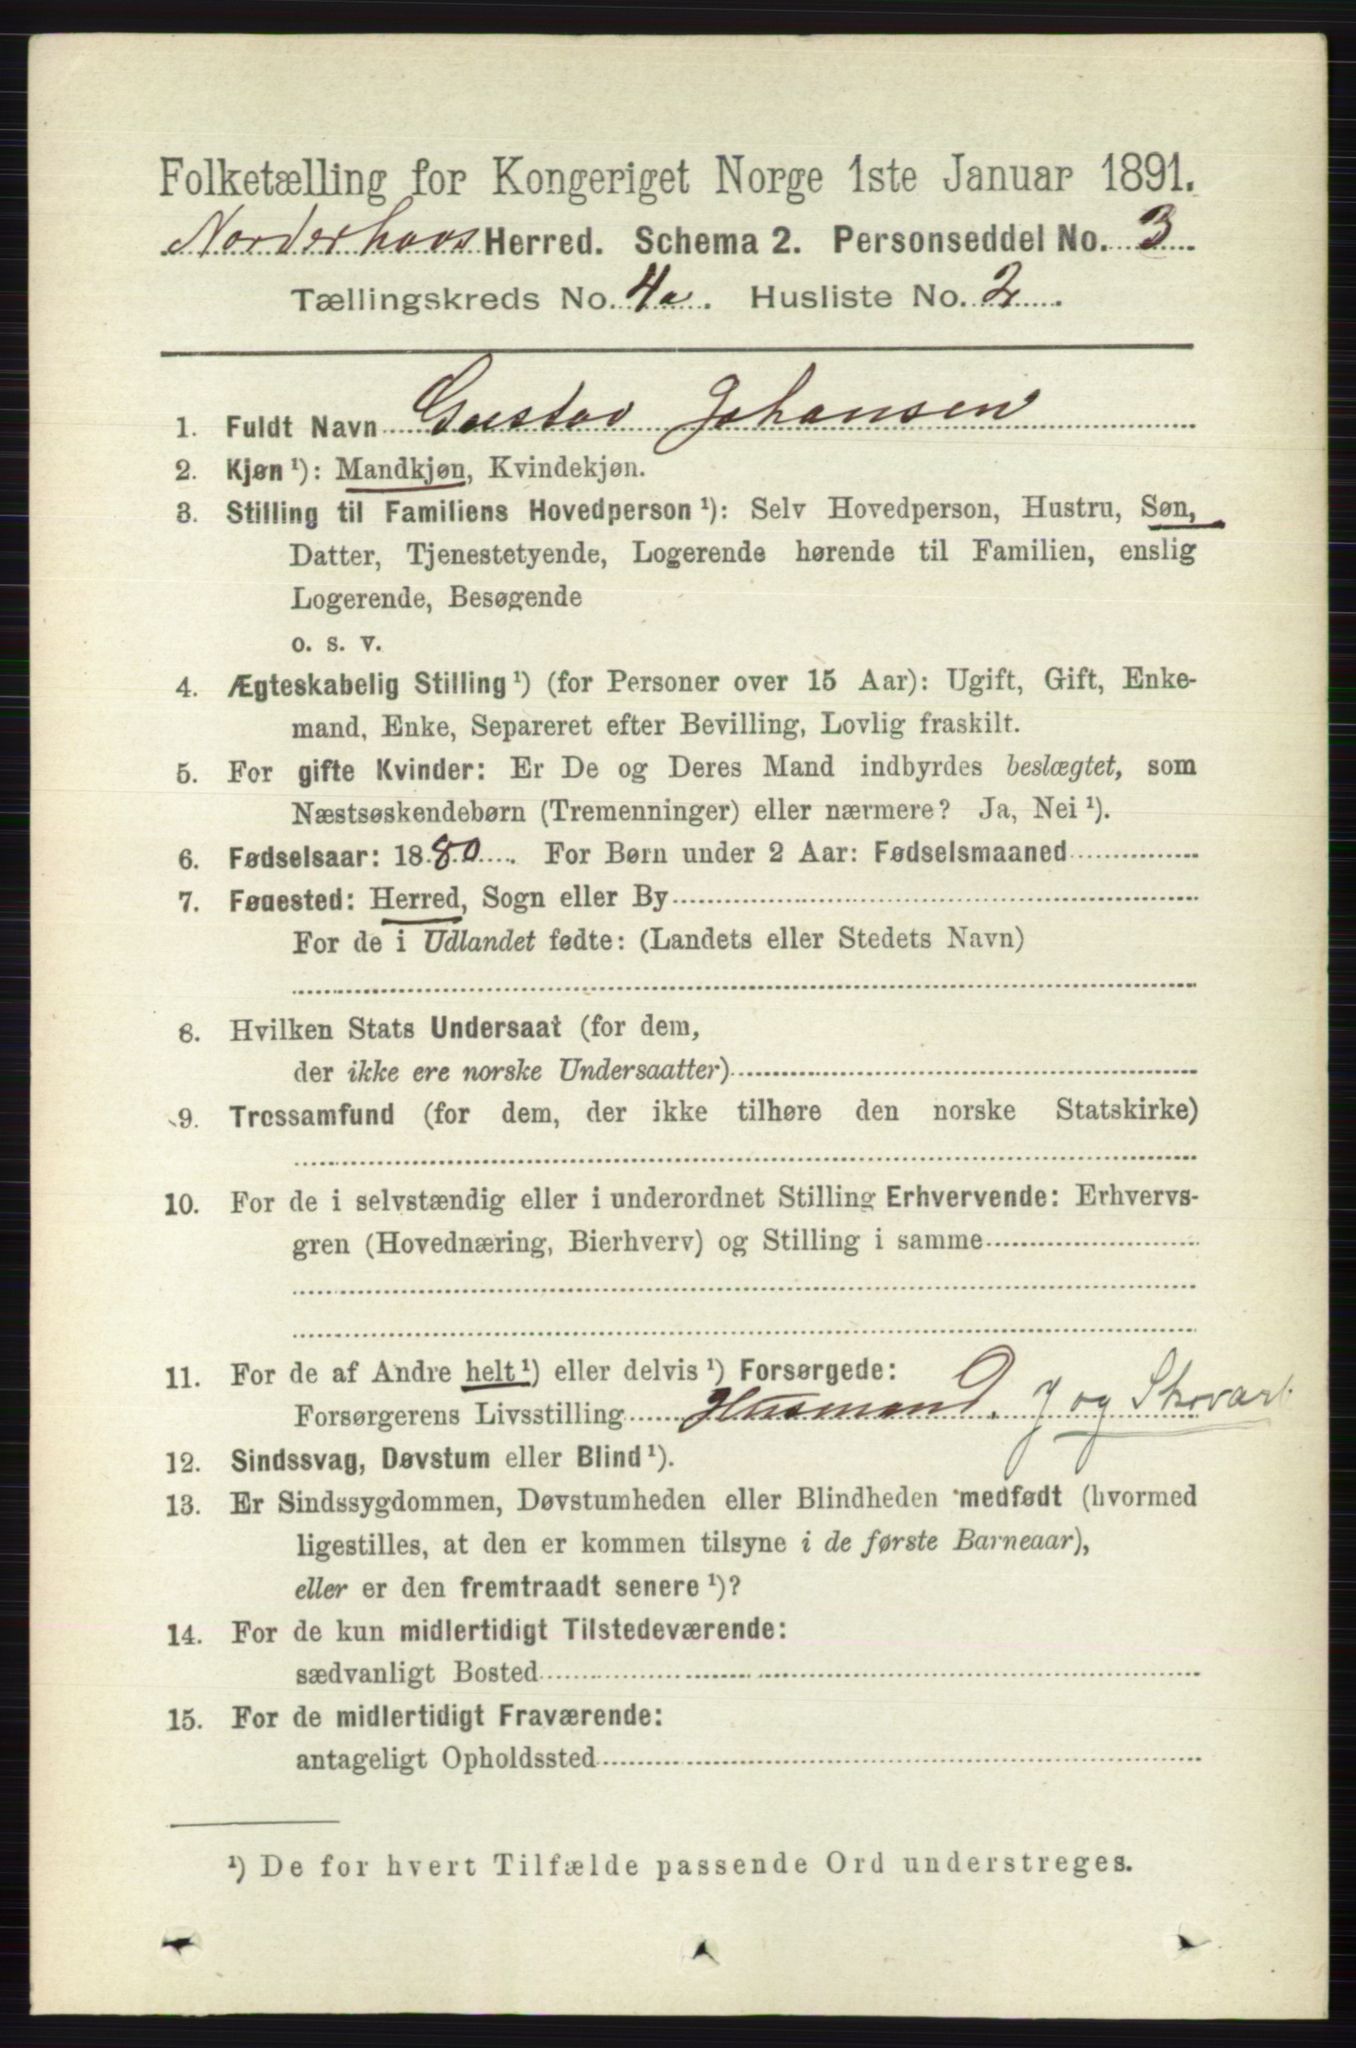 Folketælling for Kongeriget Norge 1ste Januar 1891.
Norderhovs Herred. Schema 2. Personseddel No. 3
Tællingskreds No. 4a. Husliste No. 2
1. Fuldt Navn Gustav Johansen
2. Kjøn ¹): Mandkjøn, Kvindekjøn.
3. Stilling til Familiens Hovedperson ¹): Selv Hovedperson, Hustru, Søn,
Datter, Tjenestetyende, Logerende hørende til Familien, enslig
Logerende, Besøgende
o. s. v.
4. Ægteskabelig Stilling ¹) (for Personer over 15 Aar): Ugift, Gift, Enke-
mand, Enke, Separeret efter Bevilling, Lovlig fraskilt.
5. For gifte Kvinder: Er De og Deres Mand indbyrdes beslægtet, som
Næstsøskendebørn (Tremenninger) eller nærmere? Ja, Nei ¹).
6. Fødselsaar: 1880. For Børn under 2 Aar: Fødselsmaaned
7. Føuested: Herred, Sogn eller By
For de i Udlandet fødte: (Landets eller Stedets Navn)
8. Hvilken Stats Undersaat (for dem,
der ikke ere norske Undersaatter)
9. Trossamfund (for dem, der ikke tilhøre den norske Statskirke)
10. For de i selvstændig eller i underordnet Stilling Erhvervende: Erhvervs-
gren (Hovednæring, Bierhverv) og Stilling i samme
11. For de af Andre helt ¹) eller delvis ¹) Forsørgede:
Forsørgerens Livsstilling Husmand. J og Skovarb.
12. Sindssvag, Døvstum eller Blind ¹).
13. Er Sindssygdommen, Døvstumheden eller Blindheden medfødt (hvormed
ligestilles, at den er kommen tilsyne i de første Barneaar),
eller er den fremtraadt senere ¹)?
14. For de kun midlertidigt Tilstedeværende:
sædvanligt Bosted
15. For de midlertidigt Fraværende:
antageligt Opholdssted
¹) De for hvert Tilfælde passende Ord understreges.